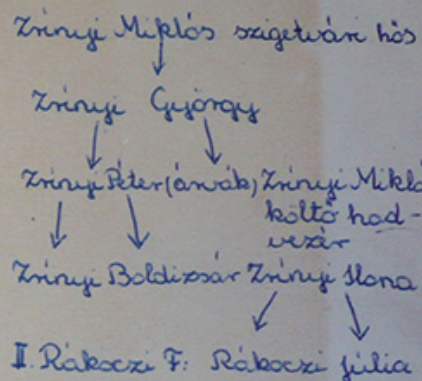 Zrinyi Miklós szigetvári hős
Zrinyi György
Zrinyi Péter (árvák) Zrinyi Mikló
költő had-
vezár
Zrinyi Boldizsár Zrinyi Ilona
II. Rákoczi F: Rákoczi Júlia